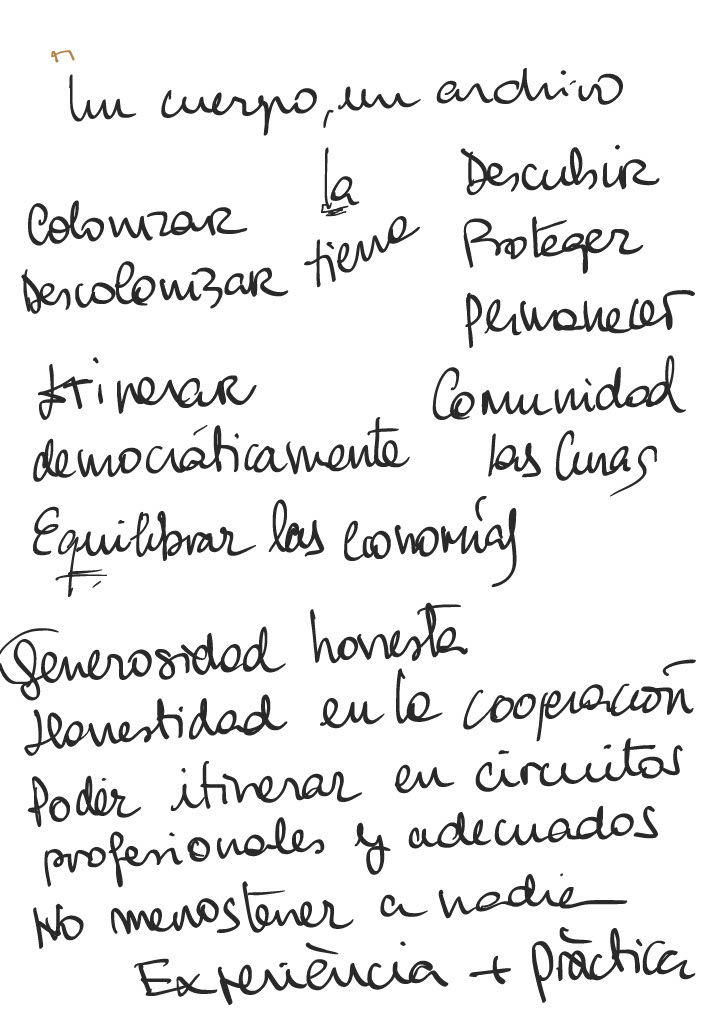 Un cuerpo, un archivo
Colonizar
Descolonizar
la
tierra
Descubrir
Proteger
Permanecer
Itinerar
democráticamente
Comunidad
las
Equilibrar las economías
Generosidad honesta
Honestidad en la cooperación
Poder itinerar en circuitos
profesionales y adecuados
No menostener a nadie
Experiència + pràctica